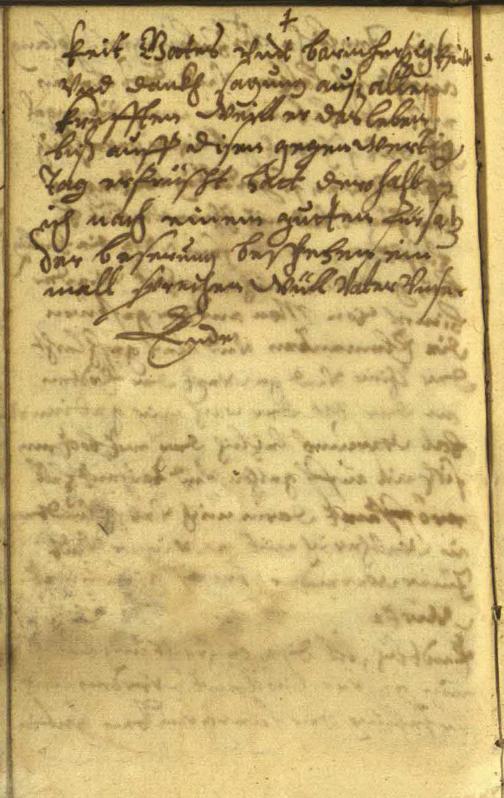 keit Gottes vnd barmherzigkeit
vnd danckh sagung auß allen
krefften weill er das leben
biß auff disen gegenwertig
tag erfrüscht hatt derohalb
ich nach einem gutten fürsatz
der beserung beschehen ein
mall sprechen will Vater Vnser
Ende